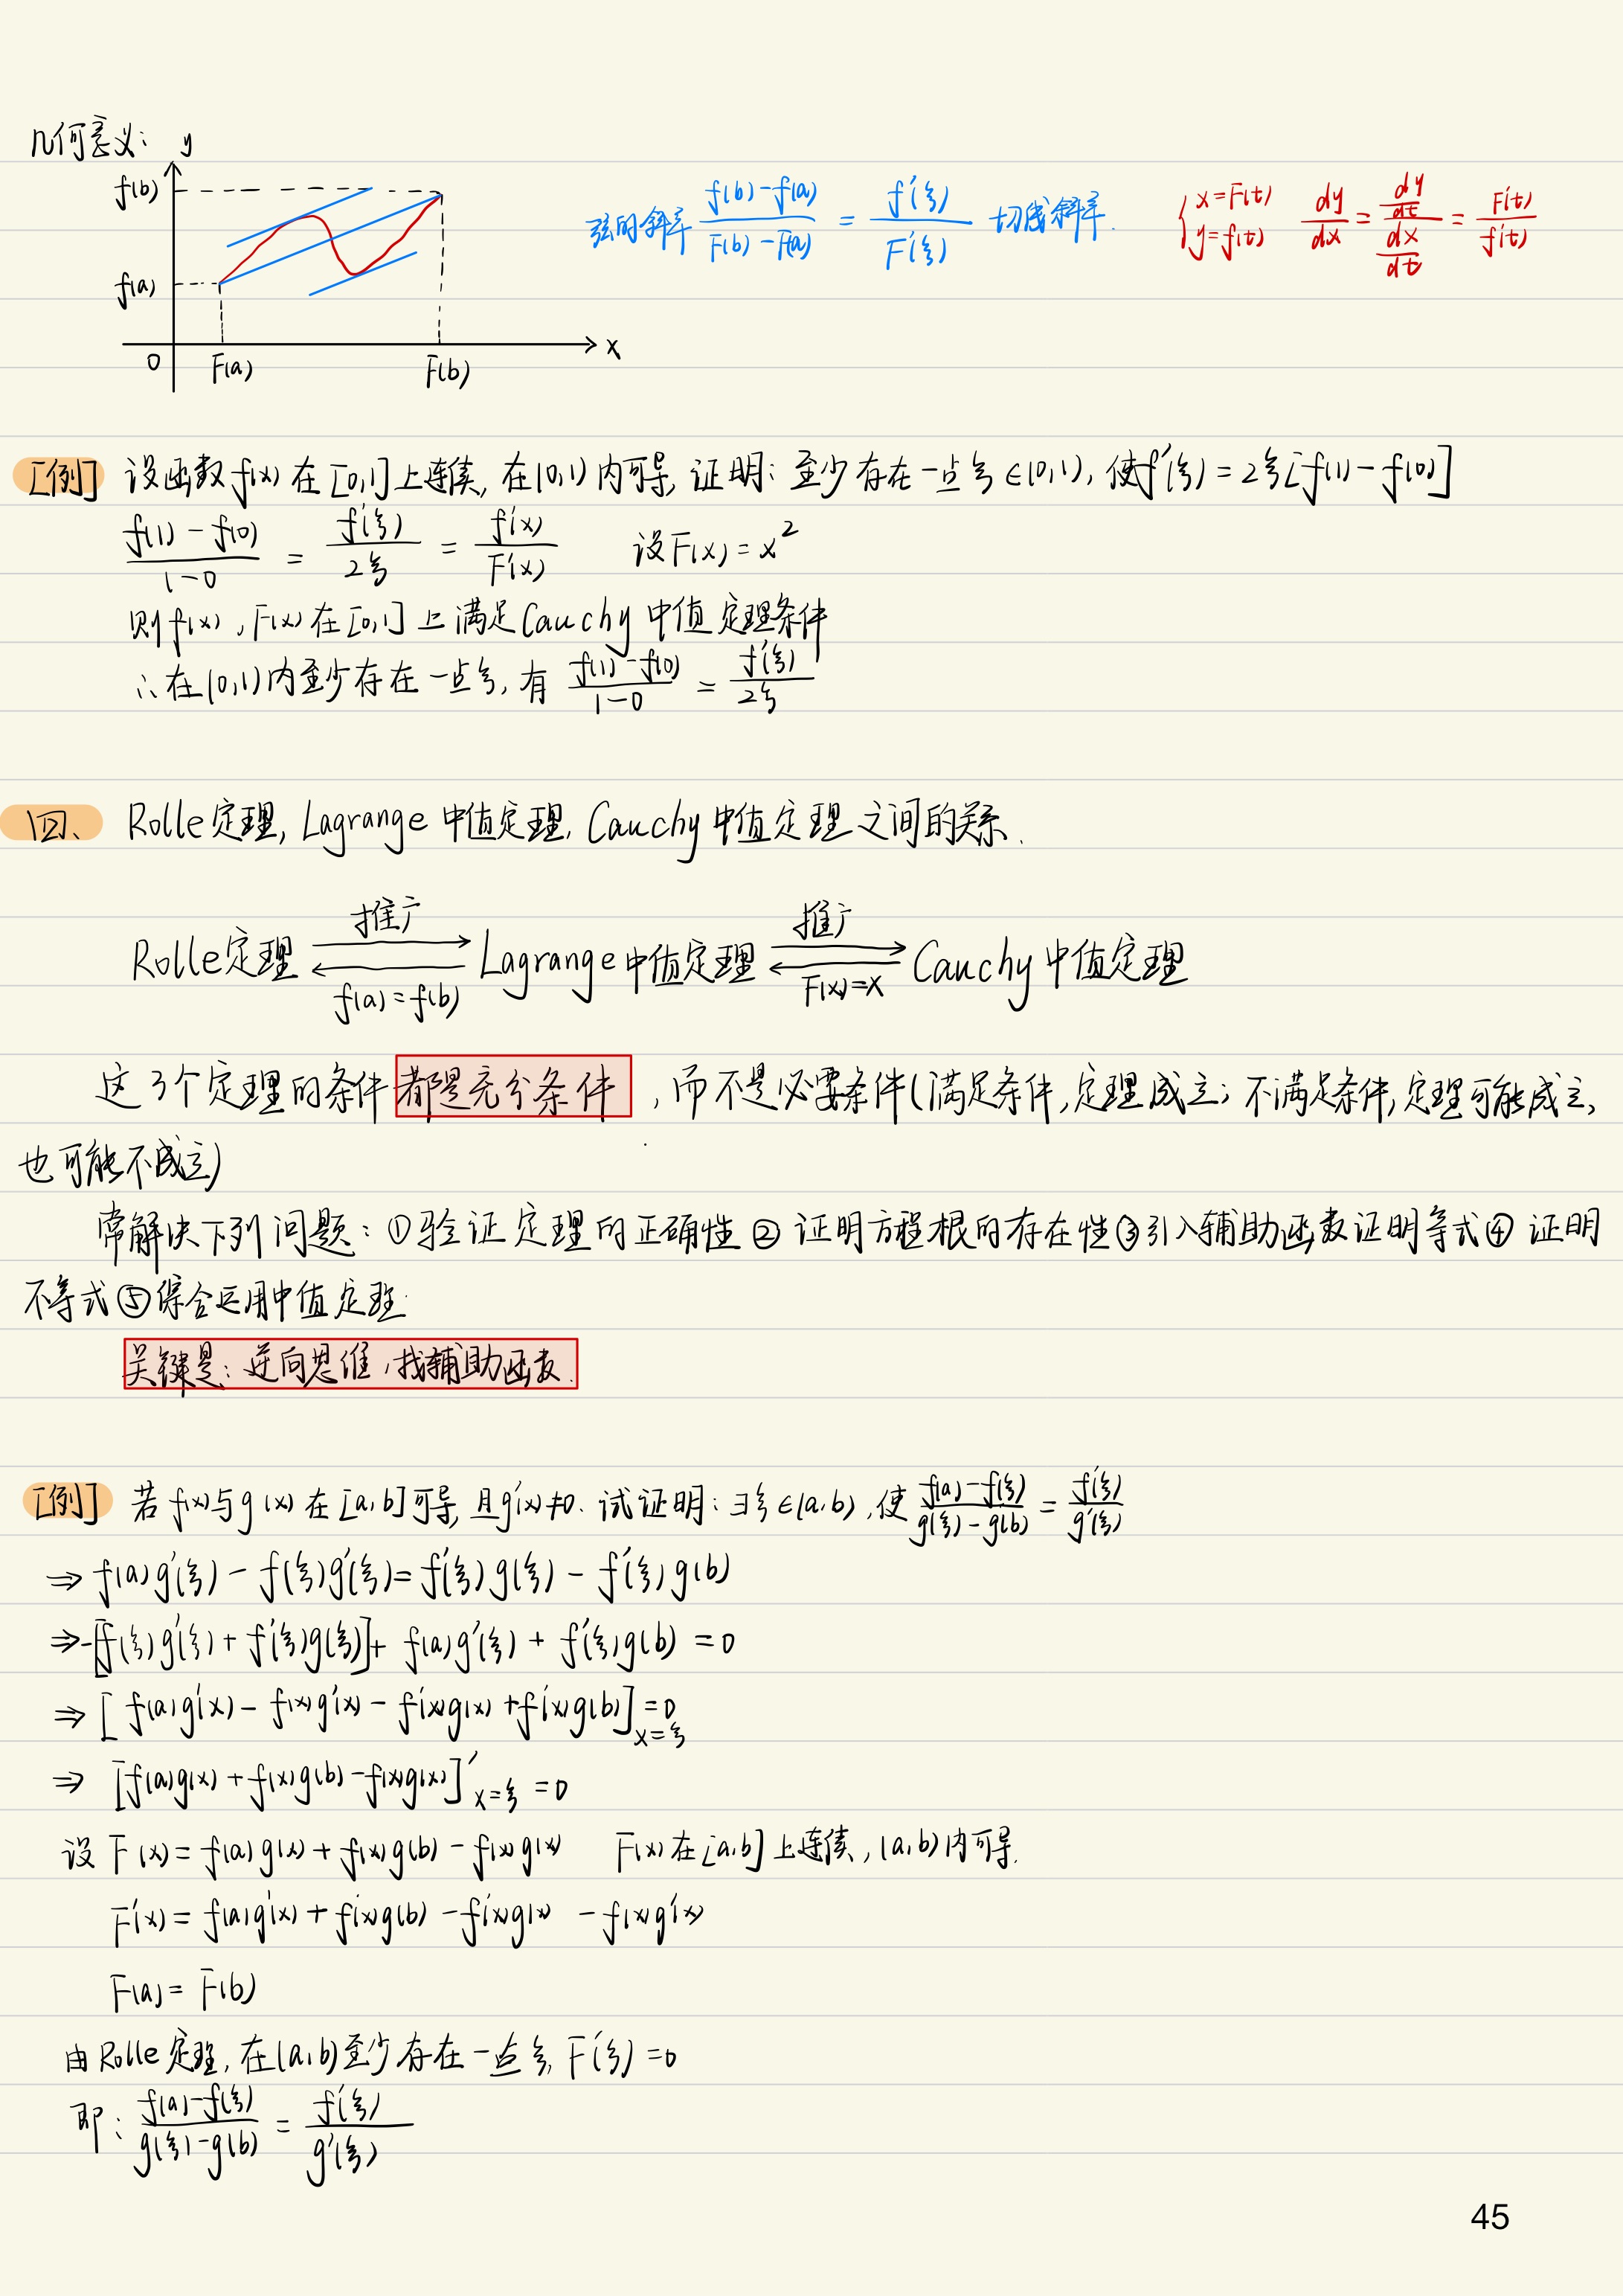 几何意义：
y
f(b)
f(a)
0
F(a)
F(b)
x
弦的斜率 \frac{f(b)-f(a)}{F(b)-F(a)} = \frac{f'(ξ)}{F'(ξ)} 切线斜率.
{x=F(t) y=f(t) \frac{dy}{dx} = \frac{\frac{dy}{dt}}{\frac{dx}{dt}} = \frac{F'(t)}{f'(t)}
[例] 设函数f(x)在[0,1]上连续,在(0,1)内可导,证明:至少存在一点ξ∈(0,1),使f'(ξ)=2ξ[f(1)-f(0)]
\frac{f(1)-f(0)}{1-0} = \frac{f'(ξ)}{2ξ} = \frac{f'(x)}{F'(x)} 设F(x)=x²
则f(x),F(x)在[0,1]上满足Cauchy中值定理条件
∴在(0,1)内至少存在一点ξ,有 \frac{f(1)-f(0)}{1-0} = \frac{f'(ξ)}{2ξ}
四、 Rolle定理, Lagrange中值定理, Cauchy中值定理之间的关系.
推广 推广
Rolle定理 ⇄ Lagrange中值定理 ⇄ Cauchy中值定理
f(a)=f(b) F(x)=x
这3个定理的条件都是充分条件,而不是必要条件(满足条件,定理成立;不满足条件,定理可能成立,
也可能不成立)
常解决下列问题:①验证定理的正确性②证明方程根的存在性③引入辅助函数证明等式④证明
不等式⑤综合运用中值定理.
关键是:逆向思维,找辅助函数.
[例] 若f(x)与g(x)在[a,b]可导,且g'(x)≠0.试证明:∃ξ∈(a,b),使\frac{f(a)-f(ξ)}{g(ξ)-g(b)} = \frac{f'(ξ)}{g'(ξ)}
⇒ f(a)g'(ξ)-f(ξ)g'(ξ)=f'(ξ)g(ξ)-f'(ξ)g(b)
⇒-[f(ξ)g'(ξ)+f'(ξ)g(ξ)]+f(a)g'(ξ)+f'(ξ)g(b)=0
⇒ [f(a)g'(x)-f(x)g'(x)-f'(x)g(x)+f'(x)g(b)]_{x=ξ}=0
⇒ [f(a)g(x)+f(x)g(b)-f(x)g(x)]'_{x=ξ}=0
设 F(x)=f(a)g(x)+f(x)g(b)-f(x)g(x) F(x)在[a,b]上连续,(a,b)内可导.
F'(x)=f(a)g'(x)+f'(x)g(b)-f'(x)g(x)-f(x)g'(x)
F(a)=F(b)
由Rolle定理,在(a,b)至少存在一点ξ,F'(ξ)=0
即: \frac{f(a)-f(ξ)}{g(ξ)-g(b)} = \frac{f'(ξ)}{g'(ξ)}
45